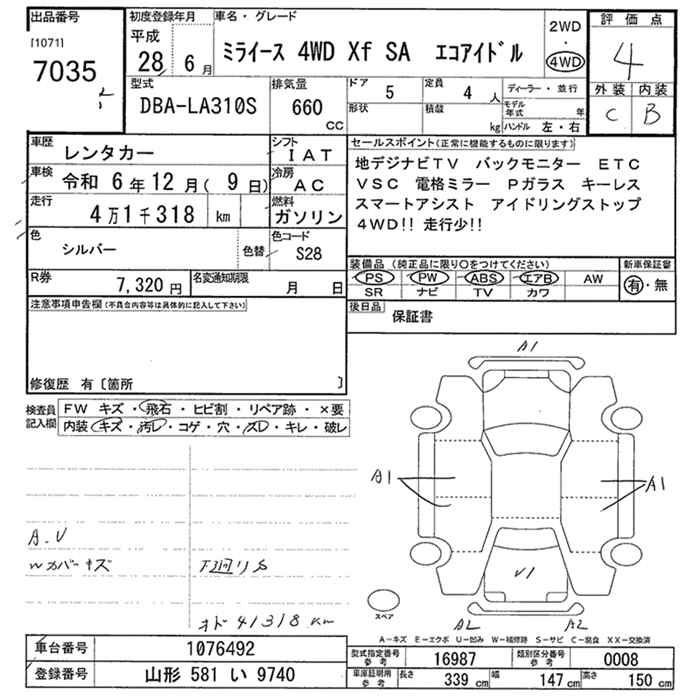 出品番号
[1071]
7035
初度登録年月
平成
28年 6月
車名・グレード
ミライース 4WD Xf SA エコアイドル
2WD
・
4WD
評価点
4
外装 内装
C B
型式
DBA-LA310S
排気量
660
CC
ドア
5
定員
4 人
形状
積載
kg
ディーラー・並行
モデル年式 年
ハンドル 左・右
車歴
レンタカー
シフト
IAT
車検
令和 6年12月( 9日)
冷房
AC
走行
4万1千318 km
燃料
ガソリン
色
シルバー
色替
色コード
S28
R券
7,320円
名変通知期限
月 日
セールスポイント(正常に機能するものに限ります)
地デジナビTV バックモニター ETC
VSC 電格ミラー Pガラス キーレス
スマートアシスト アイドリングストップ
4WD!! 走行少!!
装備品(純正品に限り○をつけてください)
PS PW ABS エアB AW
SR ナビ TV カワ
新車保証書
有・無
後日品
保証書
注意事項申告欄(不具合内容等は具体的に記入して下さい)
修復歴 有〔箇所 〕
検査員記入欄
FW キズ・飛石・ヒビ割・リペア跡・×要
内装・キズ・汚レ・コゲ・穴・スレ・キレ・破レ
A.V
Wカバーキズ
下廻りS
オド41318km
A1
A1
A1
V1
A2
A2
スペア
A-キズ E-エクボ U-凹み W-補修跡 S-サビ C-腐食 XX-交換済
車台番号
1076492
登録番号
山形 581 い 9740
型式指定番号 参考
16987
類別区分番号 参考
0008
車庫証明用 参考
長さ 339 cm
幅 147 cm
高さ 150 cm